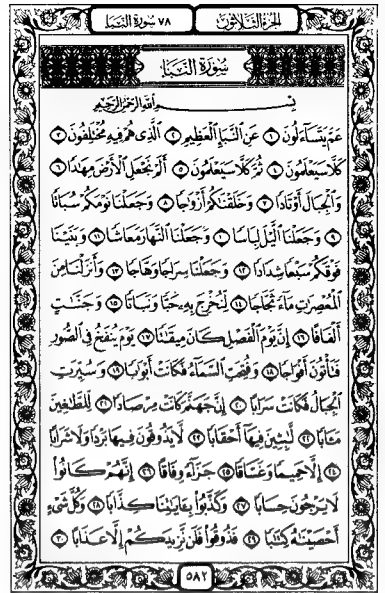 الجزء الثلاثون ٧٨ سورة النبإ
سُورَةُ النَّبَإِ
بِسْمِ اللَّهِ الرَّحْمَٰنِ الرَّحِيمِ
عَمَّ يَتَسَاءَلُونَ ١ عَنِ النَّبَإِ الْعَظِيمِ ٢ الَّذِي هُمْ فِيهِ مُخْتَلِفُونَ ٣
كَلَّا سَيَعْلَمُونَ ٤ ثُمَّ كَلَّا سَيَعْلَمُونَ ٥ أَلَمْ نَجْعَلِ الْأَرْضَ مِهَٰدًا ٦
وَالْجِبَالَ أَوْتَادًا ٧ وَخَلَقْنَٰكُمْ أَزْوَٰجًا ٨ وَجَعَلْنَا نَوْمَكُمْ سُبَاتًا
٩ وَجَعَلْنَا الَّيْلَ لِبَاسًا ١٠ وَجَعَلْنَا النَّهَارَ مَعَاشًا ١١ وَبَنَيْنَا
فَوْقَكُمْ سَبْعًا شِدَادًا ١٢ وَجَعَلْنَا سِرَاجًا وَهَّاجًا ١٣ وَأَنزَلْنَا مِنَ
الْمُعْصِرَٰتِ مَاءً ثَجَّاجًا ١٤ لِّنُخْرِجَ بِهِ حَبًّا وَنَبَاتًا ١٥ وَجَنَّٰتٍ
أَلْفَافًا ١٦ إِنَّ يَوْمَ الْفَصْلِ كَانَ مِيقَٰتًا ١٧ يَوْمَ يُنفَخُ فِي الصُّورِ
فَتَأْتُونَ أَفْوَاجًا ١٨ وَفُتِحَتِ السَّمَاءُ فَكَانَتْ أَبْوَٰبًا ١٩ وَسُيِّرَتِ
الْجِبَالُ فَكَانَتْ سَرَابًا ٢٠ إِنَّ جَهَنَّمَ كَانَتْ مِرْصَادًا ٢١ لِّلطَّٰغِينَ
مَـَٔابًا ٢٢ لَّٰبِثِينَ فِيهَا أَحْقَابًا ٢٣ لَّا يَذُوقُونَ فِيهَا بَرْدًا وَلَا شَرَابًا
٢٤ إِلَّا حَمِيمًا وَغَسَّاقًا ٢٥ جَزَاءً وِفَاقًا ٢٦ إِنَّهُمْ كَانُوا
لَا يَرْجُونَ حِسَابًا ٢٧ وَكَذَّبُوا بِـَٔايَٰتِنَا كِذَّابًا ٢٨ وَكُلَّ شَيْءٍ
أَحْصَيْنَٰهُ كِتَٰبًا ٢٩ فَذُوقُوا فَلَن نَّزِيدَكُمْ إِلَّا عَذَابًا ٣٠
٥٨٢